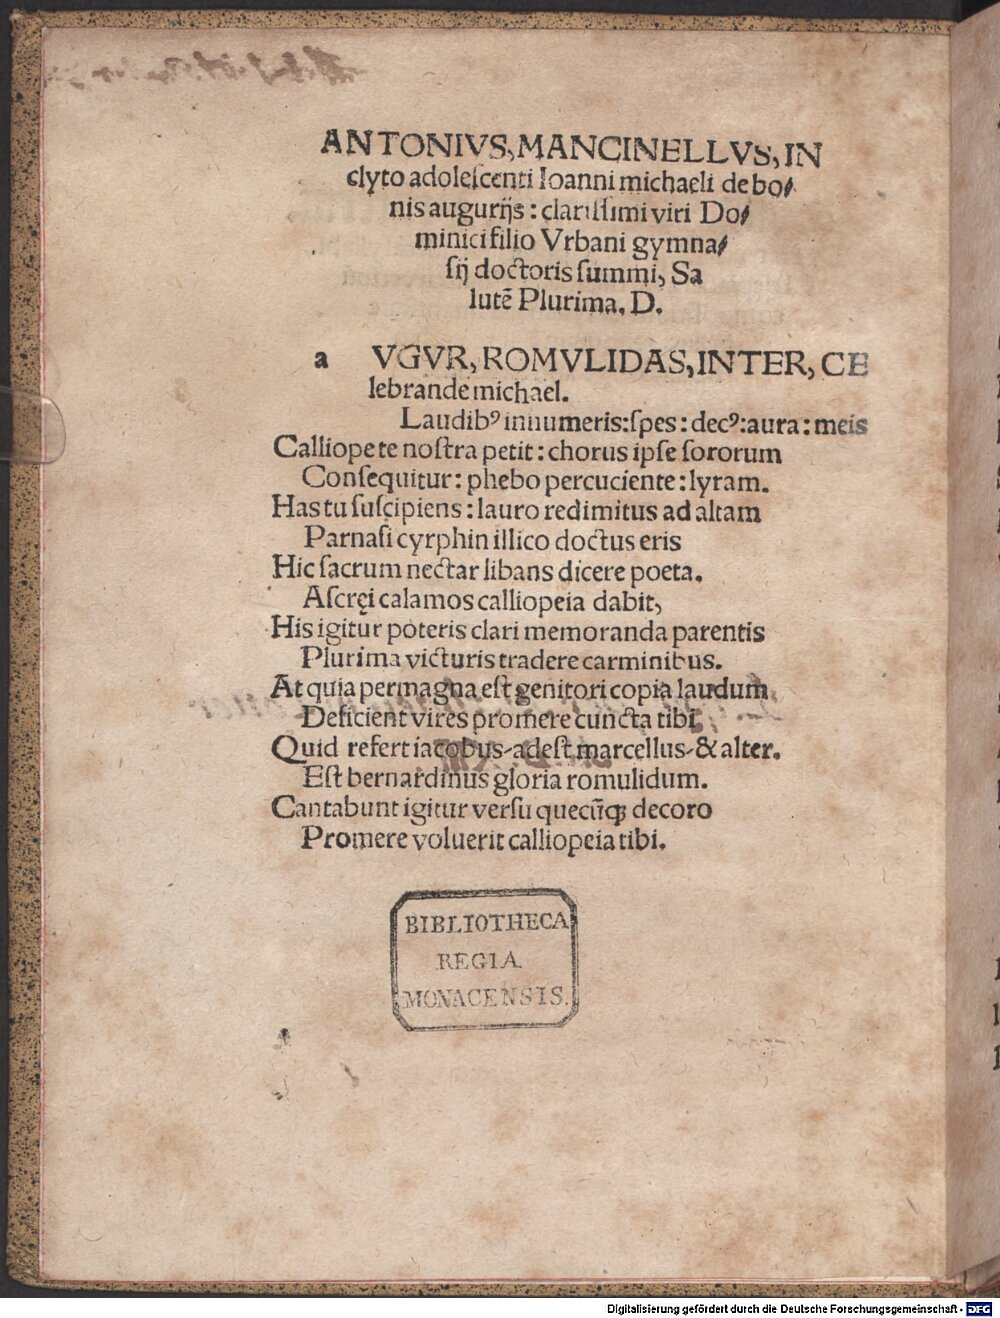 ANTONIVS, MANCINELLVS, IN
clyto adolescenti Ioanni michaeli de bo/
nis augurijs : clarissimi viri Do/
minici filio Vrbani gymna/
sij doctoris summi, Sa
lutē Plurima. D.
a VGVR, ROMVLIDAS, INTER, CE
lebrande michael.
Laudibꝰ innumeris: spes: decꝰ: aura: meis
Calliope te nostra petit: chorus ipse sororum
Consequitur: phebo percuciente: lyram.
Has tu suscipiens: lauro redimitus ad altam
Parnasi cyrphin illico doctus eris
Hic sacrum nectar libans dicere poeta.
Ascręi calamos calliopeia dabit,
His igitur poteris clari memoranda parentis
Plurima victuris tradere carminibus.
At quia permagna est genitori copia laudum
Deficient vires promere cuncta tibi,
Quid refert iacobus-adest marcellus-& alter.
Est bernardinus gloria romulidum.
Cantabunt igitur versu quecūqꝫ decoro
Promere voluerit calliopeia tibi.
BIBLIOTHECA
REGIA
MONACENSIS.
Digitalisierung gefördert durch die Deutsche Forschungsgemeinschaft - DFG